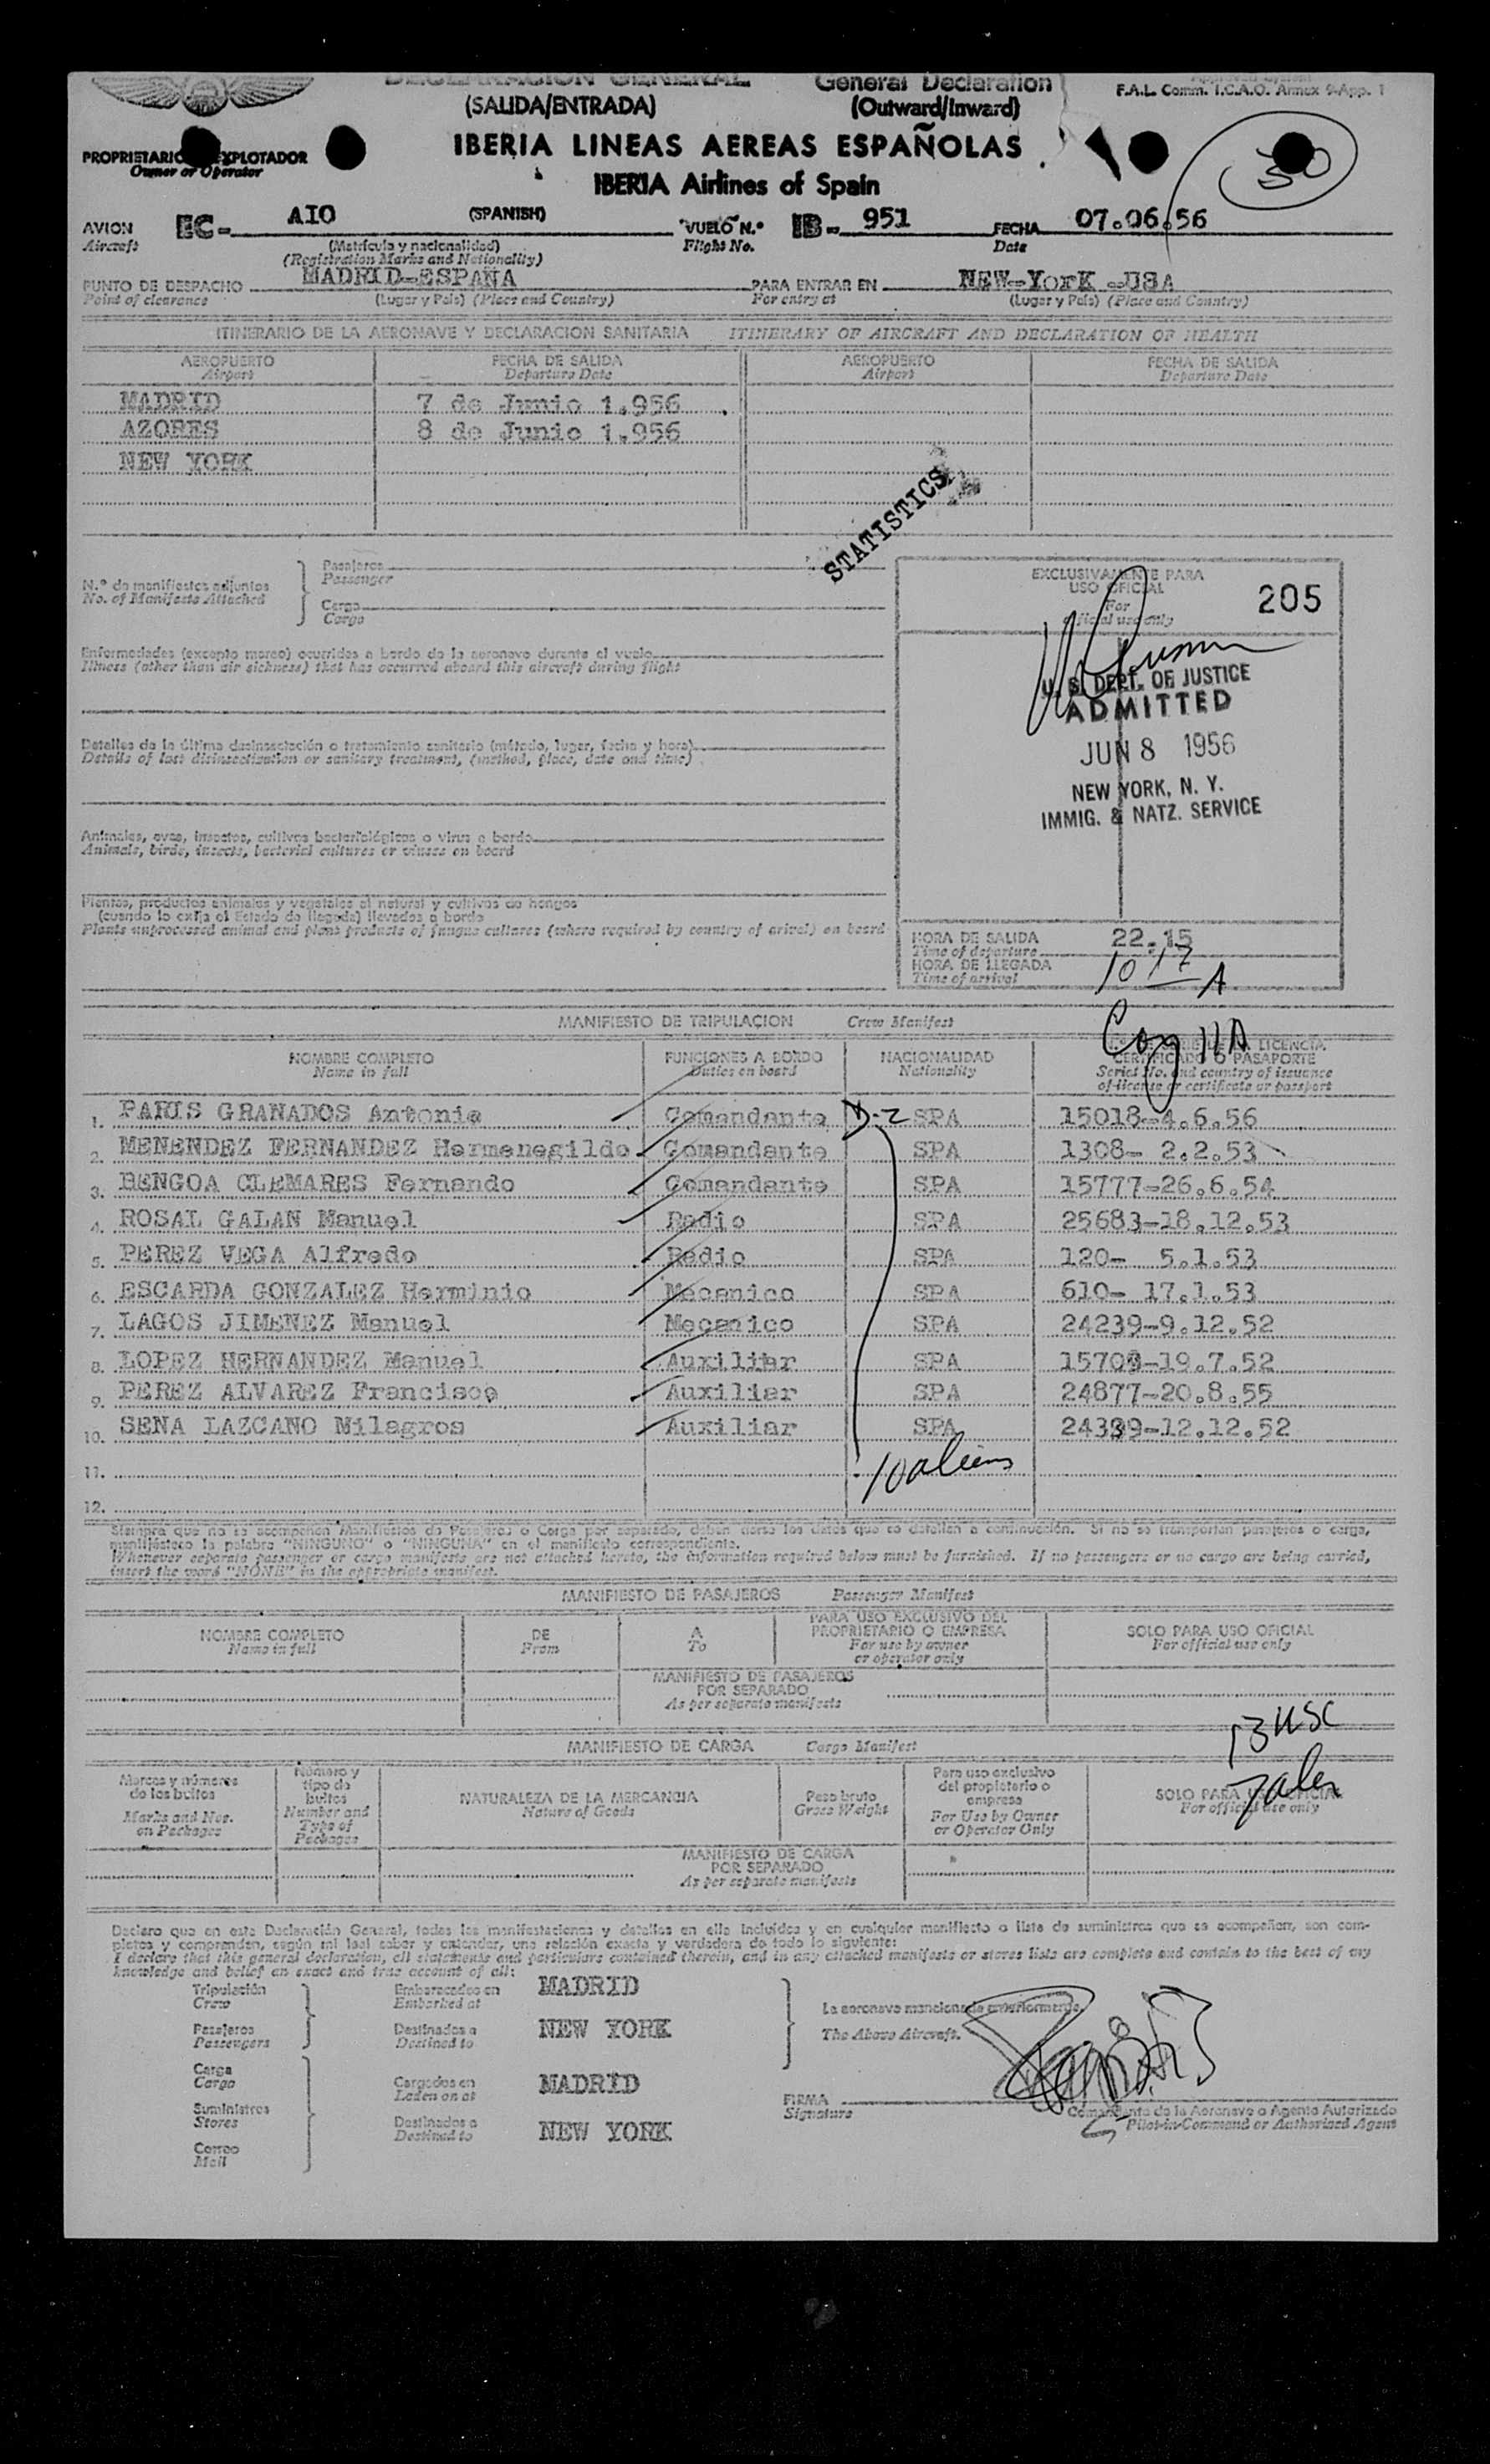 DECLARACION GENERAL General Declaration
(SALIDA/ENTRADA) (Outward/Inward)
F.A.L. Comm. I.C.A.O. Annex 9-App. 1
IBERIA LINEAS AEREAS ESPAÑOLAS
IBERIA Airlines of Spain
PROPRIETARIO EXPLOTADOR
Owner or Operator
30
AVION EC- AIO (SPANISH) VUELO N.º IB- 951 FECHA 07.06.56
Aircraft (Matrícula y nacionalidad) Flight No. Date
(Registration Marks and Nationality)
PUNTO DE DESPACHO MADRID-ESPAÑA PARA ENTRAR EN NEW-YorK -USA
Point of clearance (Lugar y País) (Place and Country) For entry at (Lugar y País) (Place and Country)
ITINERARIO DE LA AERONAVE Y DECLARACION SANITARIA ITINERARY OF AIRCRAFT AND DECLARATION OF HEALTH
AEROPUERTO FECHA DE SALIDA AEROPUERTO FECHA DE SALIDA
Airport Departure Date Airport Departure Date
MADRID 7 de Junio 1.956
AZORES 8 de Junio 1.956
NEW YORK
STATISTICS
N.º de manifiestos adjuntos
No. of Manifests Attached
Pasajeros
Passenger
Cargo
Cargo
EXCLUSIVAMENTE PARA
USO OFICIAL
For
official use only
205
Enfermedades (excepto mareo) ocurridas a bordo de la aeronave durante el vuelo
Illness (other than air sickness) that has occurred aboard this aircraft during flight
U. S. DEPT. OF JUSTICE
ADMITTED
JUN 8 1956
NEW YORK, N. Y.
IMMIG. & NATZ. SERVICE
Detalles de la última desinsectación o tratamiento sanitario (método, lugar, fecha y hora)
Details of last disinsectization or sanitary treatment, (method, place, date and time)
Animales, aves, insectos, cultivos bacteriológicos o virus a bordo
Animals, birds, insects, bacterial cultures or viruses on board
Plantas, productos animales y vegetales al natural y cultivos de hongos
(cuando lo exija el Estado de llegada) llevados a bordo
Plants unprocessed animal and plant products of fungus cultures (where required by country of arival) on board
HORA DE SALIDA 22.15
Time of departure
HORA DE LLEGADA 10 17 A
Time of arrival
MANIFIESTO DE TRIPULACION Crew Manifest
NOMBRE COMPLETO FUNCIONES A BORDO NACIONALIDAD LICENCIA
CERTIFICADO O PASAPORTE
Name in full Duties on board Nationality Series No. and country of issuance
of license or certificate or passport
1. PARIS GRANADOS Antonio Comandante D-2 SPA 15018-4.6.56
2. MENENDEZ FERNANDEZ Hermenegildo Comandante SPA 1308- 2.2.53
3. BENGOA CLEMARES Fernando Comandante SPA 15777-26.6.54
4. ROSAL GALAN Manuel Radio SPA 25683-18.12.53
5. PEREZ VEGA Alfredo Radio SPA 120- 5.1.53
6. ESCARDA GONZALEZ Herminio Mecanico SPA 610- 17.1.53
7. LAGOS JIMENEZ Manuel Mecanico SPA 24239-9.12.52
8. LOPEZ HERNANDEZ Manuel Auxiliar SPA -19.7.52
9. PEREZ ALVAREZ Francisco Auxiliar SPA 24877-20.8.55
10. SENA LAZCANO Milagros Auxiliar SPA -12.12.52
11. 10 aliens
12.
Siempre que no se acompañen Manifiestos de Pasajeros o Carga por separado, deben darse los datos que se detallan a continuación. Si no se transportan pasajeros o carga,
manifiéstese la palabra "NINGUNO" o "NINGUNA" en el manifiesto correspondiente.
Whenever separate passenger or cargo manifests are not attached hereto, the information required below must be furnished. If no passengers or no cargo are being carried,
insert the word "NONE" in the appropriate manifest.
MANIFIESTO DE PASAJEROS Passenger Manifest
NOMBRE COMPLETO DE A PARA USO EXCLUSIVO DEL
PROPRIETARIO O EMPRESA SOLO PARA USO OFICIAL
Name in full From To For use by owner
or operator only For official use only
MANIFIESTO DE PASAJEROS
POR SEPARADO
As per separate manifests
MANIFIESTO DE CARGA Cargo Manifest
Marcas y números
de los bultos
Marks and Nos.
on Packages
Número y
tipo de
bultos
Number and
Type of
Packages
NATURALEZA DE LA MERCANCIA
Nature of Goods
Peso bruto
Gross Weight
Para uso exclusivo
del propietario o
empresa
For Use by Owner
or Operator Only
SOLO PARA USO OFICIAL
For official use only
MANIFIESTO DE CARGA
POR SEPARADO
As per separate manifests
Declaro que en esta Declaración General, todas las manifestaciones y detalles en ella incluidos y en cualquier manifiesto o lista de suministros que se acompañen, son com-
pletos y comprenden, según mi leal saber y entender, una relación exacta y verdadera de todo lo siguiente:
I declare that this general declaration, all statements and particulars contained therein, and in any attached manifests or stores lists are complete and contain to the best of my
knowledge and belief an exact and true account of all:
Tripulación Embarcados en MADRID
Crew Embarked at
Pasajeros Destinados a NEW YORK
Passengers Destined to
La aeronave mencionada anteriormente.
The Above Aircraft.
Carga Cargados en MADRID
Cargo Laden on at
Suministros Destinados a NEW YORK
Stores Destined to
Correo
Mail
FIRMA
Signature
Comandante de la Aeronave o Agente Autorizado
Pilot-in-Command or Authorized Agent